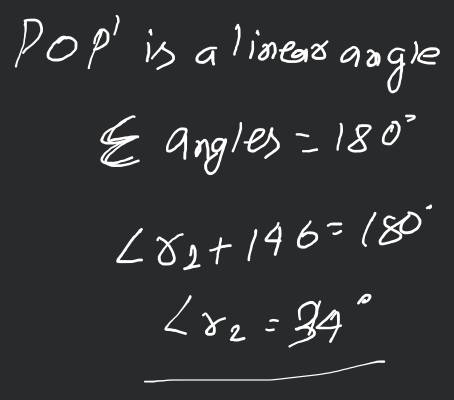 POP' is a linear angle
Σ angles = 180°
∠r₂ + 146 = 180°
∠r₂ = 34°